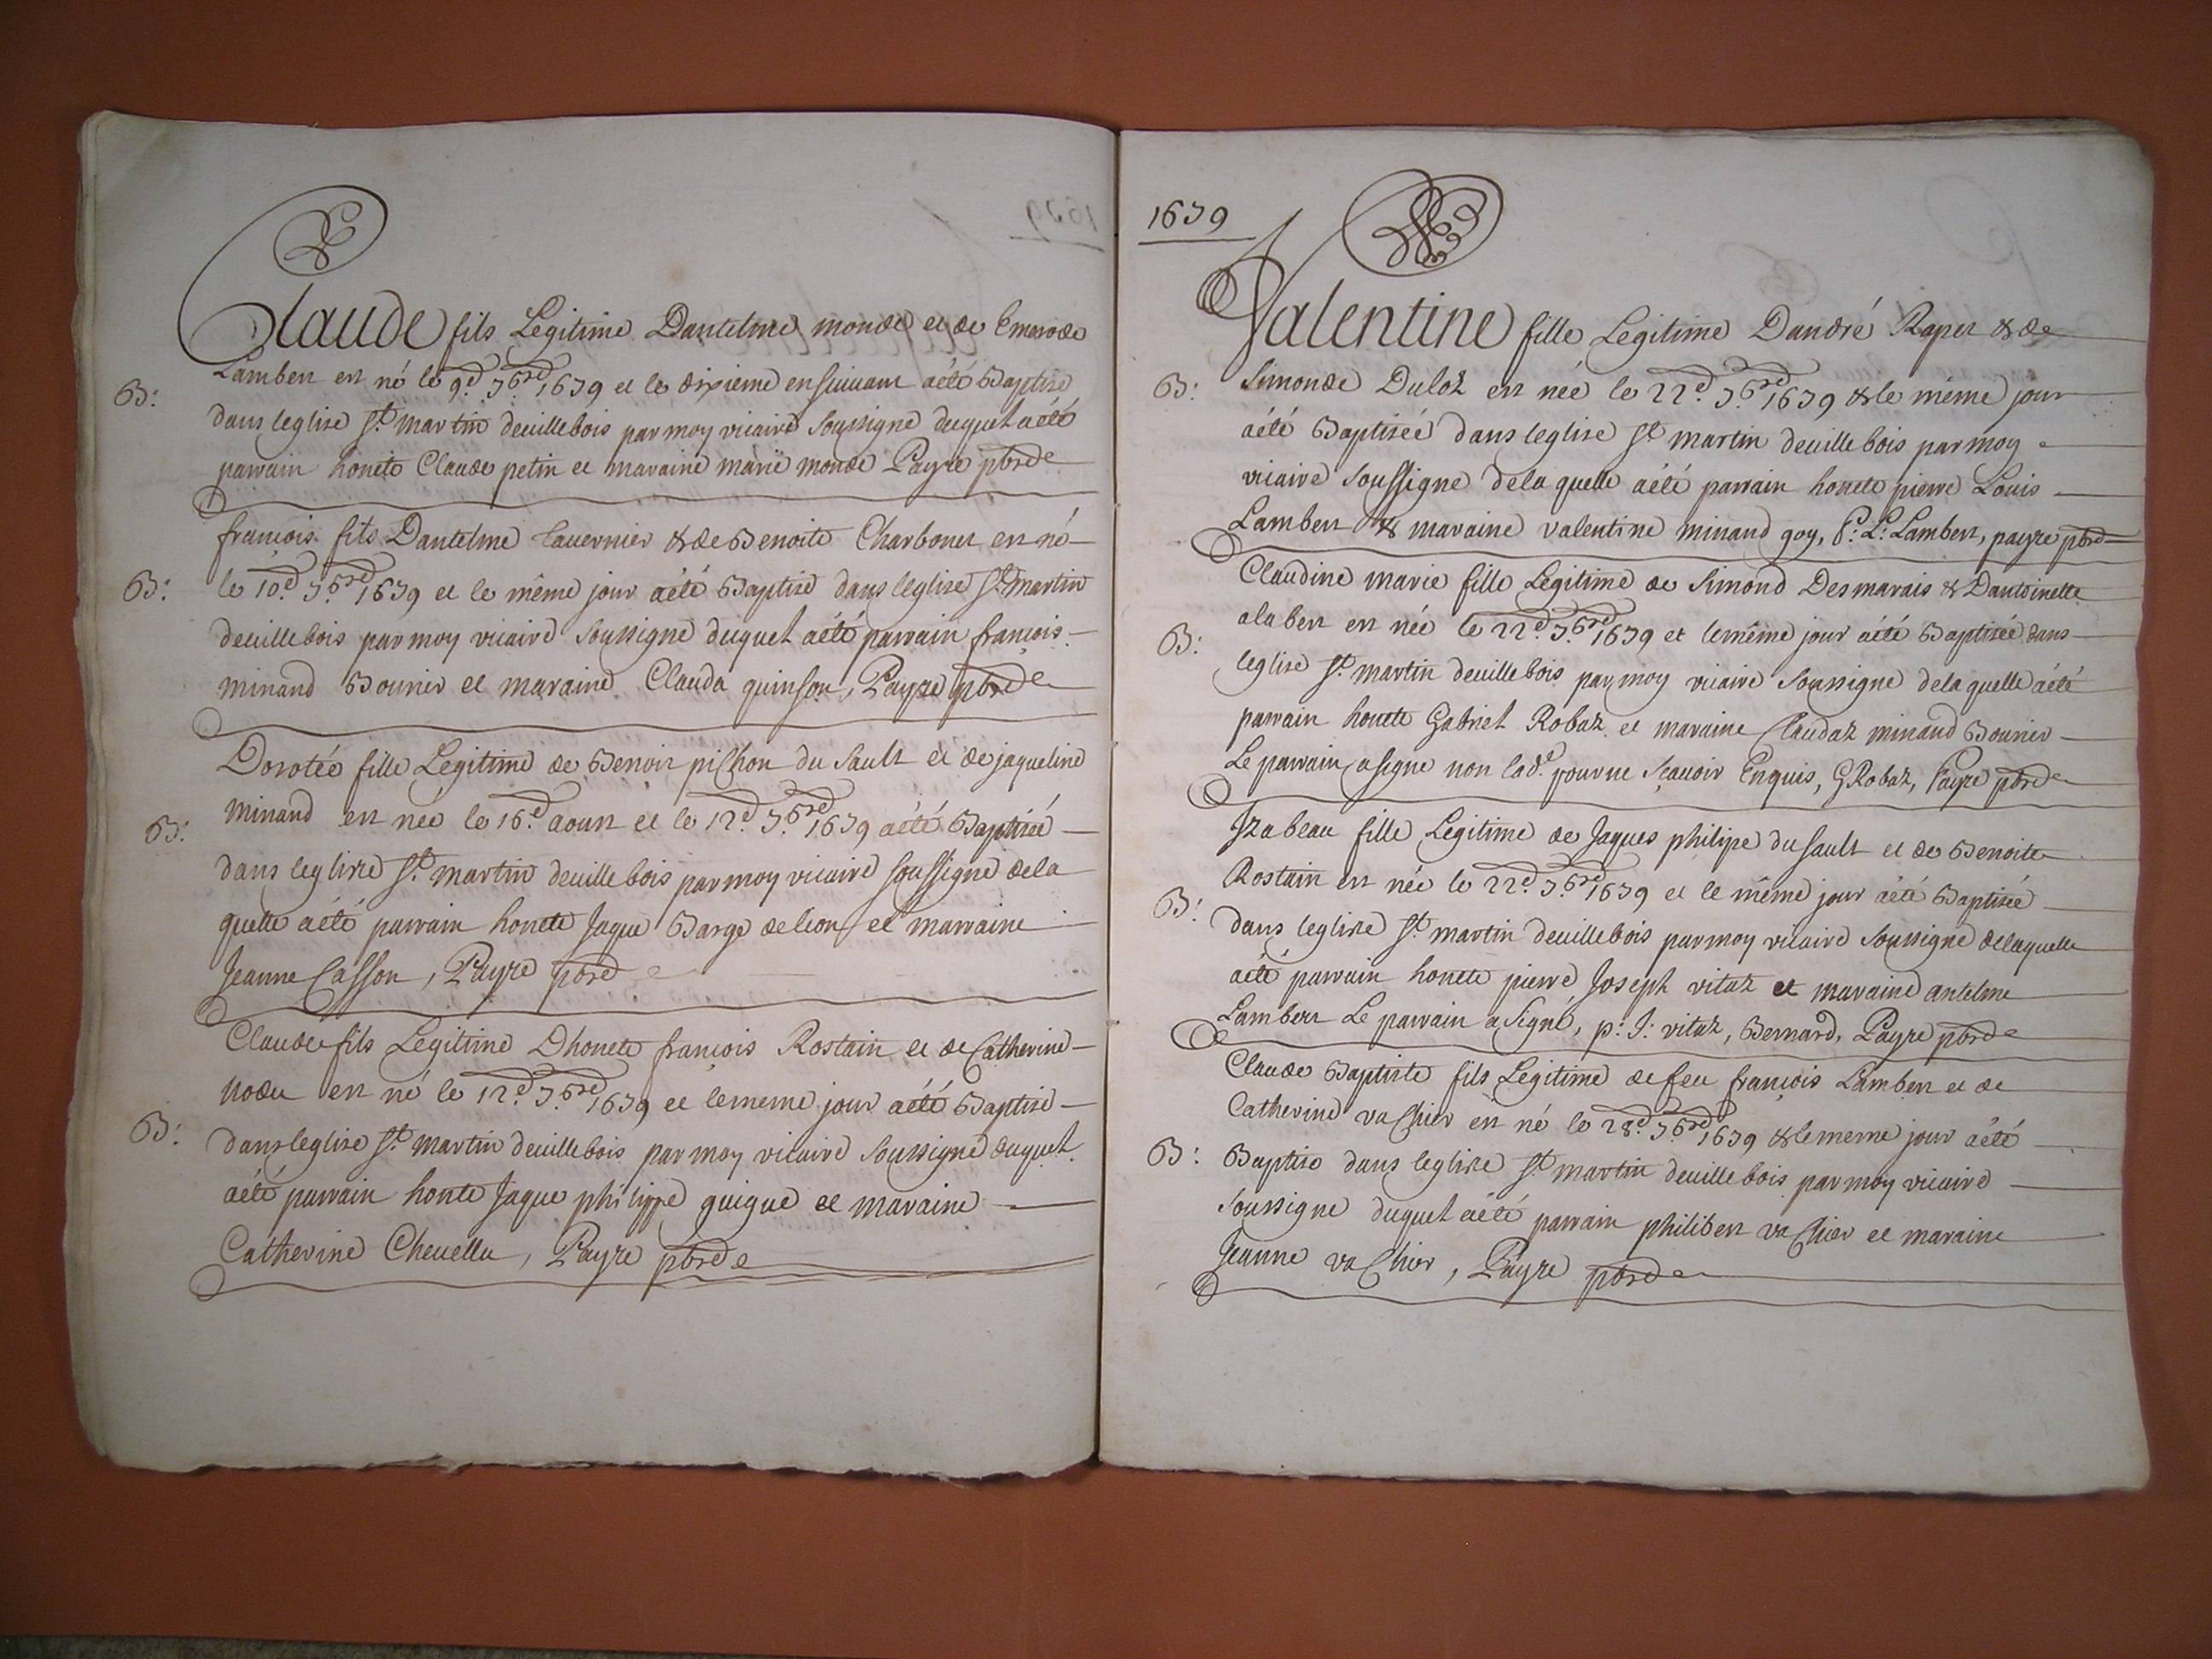 Claude fils Legitime Dantelme monde et de Emerode
B: Lambert est né le 9.d 7.bre 1679 et le dixieme ensuivant aété Baptisé
dans leglise St. martin deuillebois par moy vicaire Soussigne duquel aété
parrain honete Claude petin et maraine marie monde Payre pbre
francois fils Dantelme tauernier & de Benoite Charbonet est né
B: le 10.d 7.bre 1679 et le même jour aété Baptisé dans leglise St. Martin
deuillebois par moy vicaire Soussigne duquel aété parrain francois
minand Bounier et maraine Clauda quinson, Payre pbre
Dorotée fille Legitime de Benoit piChon du Sault et de jaqueline
B: minand est née le 16.d aoust et le 12.d 7.bre 1679 aété Baptisée
dans leglise St. martin deuillebois par moy vicaire soussigné dela
quelle aété parrain honete Jaque Barge de leon et marraine
Jeanne Casson, Payre pbre
Claude fils Legitime Dhonete francois Rostain et de Catherine
nodu est né le 12.d 7.bre 1679 et lememe jour aété Baptisé
B: dans leglise St. martin deuillebois par moy vicaire Soussigne duquel
aété parrain honte Jaque philippe guigue et maraine
Catherine Cheuellu, Payre pbre
1679
Valentine fille Legitime Dandré Raper & de
B: Simonde Duloz est née le 22.d 7.bre 1679 & le même jour
aété Baptiséé dans leglise St. martin deuillebois par moy
vicaire Soussigne dela quelle aété parrain honete pierre Louis
Lambert & maraine valentine minand goy, P: L: Lambert, payre pbre
Claudine marie fille Legitime de Simond Desmarais & Dantoinette
alabert est née le 22.d 7.bre 1679 et lemême jour aété Baptisée dans
B: leglise St. martin deuillebois par moy vicaire Soussigne dela quelle aété
parrain honete Gabriel Robaz et maraine Claudaz minand Bounier
Le parrain asigne non lad.e pour ne Sçauoir Enquis, GRobaz, Payre pbre
Izabeau fille Legitime de Jaques philipe du Sault et de Benoite
Rostain est née le 22.d 7.bre 1679 et le même jour aété Baptisée
B: dans leglise St. martin deuillebois par moy vicaire Soussigne delaquelle
aété parrain honete pierre Joseph vitaz et maraine antelme
Lambert Le parrain a Signé, p: J: vitaz, Bernard, Payre pbre
Claude Baptiste fils Legitime de feu francois Lambert et de
Catherine vaChier est né le 28.d 7.bre 1679 & lememe jour aété
B: Baptisé dans leglise St. martin deuillebois par moy vicaire
Soussigne duquel aété parrain philibert vaChier et maraine
Jeanne vaChier, Payre pbre